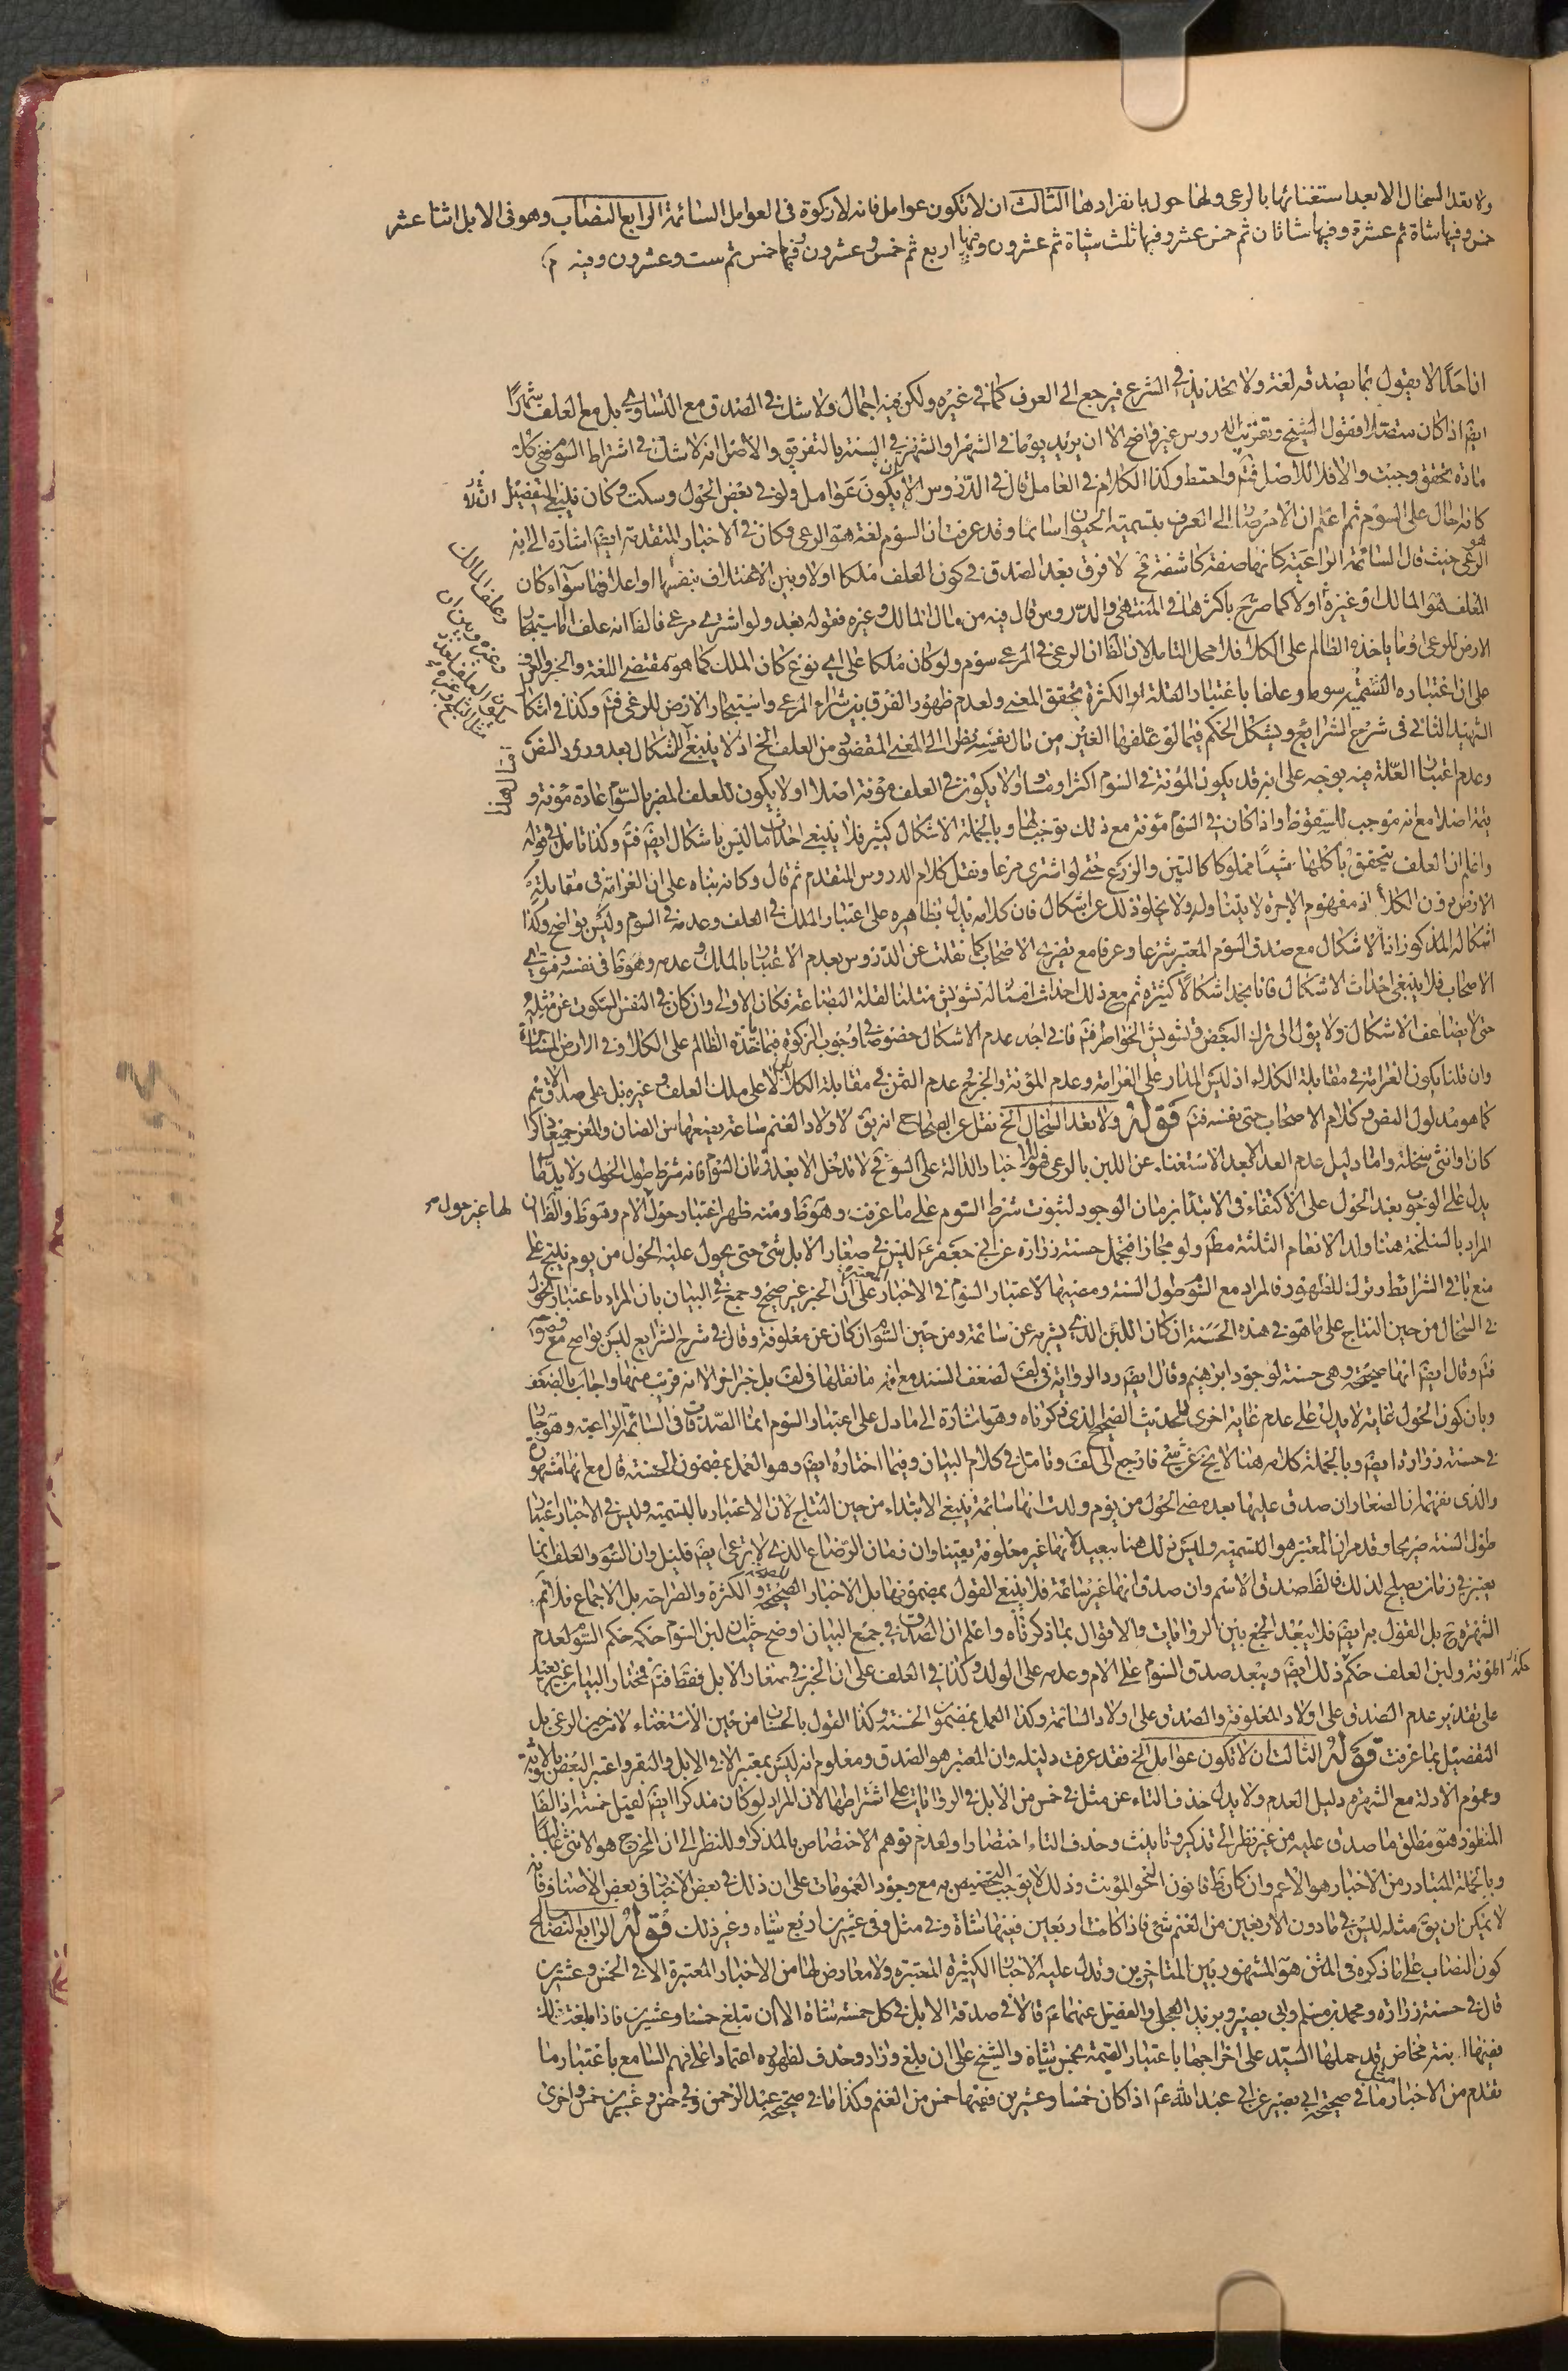 ولا تعد السخال الا بعد استغنائها بالرعى ولها حول بانفرادها الثالث ان لا تكون عوامل فانه لا زكوة فى العوامل السائمة الرابع النصاب وهو فى الابل اثنا عشر
خمس وفيها شاة ثم عشرة وفيها شاتان ثم خمس عشر وفيها ثلث شياة ثم عشرون وفيها اربع ثم خمس وعشرون وفيها خمس ثم ست وعشرون وفيه
انا حدا لا يقول بما يصدقه لغة ولا تحديد فى الشرع فيرجع الى العرف كما فى غيره ولكن فيه اجمال ولا شك فى الصدق مع التساوى بل مع العلف شهرا
ايضا اذا كان متصلا فقول الشيخ وتقريب الدروس غير واضح الا ان يريد يوما فى الشهر والشهر فى السنة بالتفريق والاصل انه لا شك فى اشتراط السوم فى كل
مادة يتحقق وجبت والا فلا للاصل فتم واحتط وكذا الكلام فى العامل قال فى الدروس ان لا يكون عوامل ولو فى بعض الحول وسكت وكان ينبغى التفصيل
كانه حال على السوم ثم اعلم ان الامر هنا الى العرف بتسمية الحيوان سائما وقد عرفت ان السوم لغة هو الرعى وكان فى الاخبار المتقدمة ايضا اشارة الى انه
الرعى حيث قال السائمة الراعية كانها صفة كاشفة فح لا فرق بعد الصدق فى كون العلف ملكا اولا وبين الاعتلاف بنفسها او اعلافها سواء كان
العلف هو المالك او غيره اولا كما صرح باكثرها فى المنتهى والدروس قال فيه من مال المالك وغيره فقوله بعد ولو اشترى مرعى فالظ انه علف اما استيجار
الارض للرعى او ما ياخذه الظالم على الكلاء فلا محل التامل لان الظ ان الرعى فى المرعى سوم ولو كان ملكا على اى نوع كان الملك كما هو مقتضى اللغة والخبر والعرف
على ان اعتباره التسمية سوما وعلفا باعتبار القلة او الكثرة بتحقق المعنى ولعدم ظهور الفرق بين شراء المرعى واستيجار الارض للرعى فتم وكذا فى اشكال
الشهيد الثانى فى شرح الشرايع ويشكل الحكم فيما لو علفها الغير من مال نفسه نظرا الى المعنى المقصود من العلف الخ اذ لا ينبغى الاشكال بعد ورود النص
وعدم اعتبار العلة فيه بوجه على انه قد يكون المؤنة فى السوم اكثر او مساو ولا يكون فى العلف مؤنة اصلا او لا يكون للعلف المضر بالسوم عادة مؤنة و
قيمة اصلا مع انه موجب للسقوط واذا كان فى السوم مؤنة مع ذلك يوجبها وبالجملة الاشكال كثير فلا ينبغى احداث ما ليس باشكال ايضا فتم وكذا تامل فى قوله
واعلم ان العلف يتحقق باكلها شيئا مملوكا كالتبن والزرع حتى لو اشترى مرعا ونقل كلام الدروس المتقدم ثم قال وكانه بناه على ان الغرامة فى مقابلة
الارض دون الكلاء اذ مفهوم الاجرة لا يتناوله ولا يخلو ذلك عن اشكال فان كلامه يدل بظاهره على اعتبار الملك فى العلف وعدمه فى السوم وليس بواضح وكذا
اشكاله المذكور اذ لا اشكال مع صدق السوم المعتبر شرعا وعرفا مع تصريح الاصحاب كما نقلت عن الدروس بعدم الاعتبار بالملك وعدمه وهو ظ فى نفسه
الاصحاب فلا ينبغى احداث الاشكال فانا نجد اشكالا كثيرة ثم مع ذلك احداث امثاله تشويش مثلنا لقلة البضاعة فكان الاولى وان كان فى النفس السكوت عن مثله
حتى لا يضاعف الاشكال ولا يؤل الى ترك البعض وتشويش الخواطر فتم فانى اجد عدم الاشكال خصوصا فى وجوب الزكوة فيما ياخذه الظالم على الكلاء وفى الارض المستاجرة
وان قلنا يكون الغرامة فى مقابلة الكلاء اذ ليس المدار على الغرامة وعدم المؤنة والخرج عدم الثمن فى مقابلة الكلاء ولا على ملك العلف وغيره بل على صدق الاسم
كما هو مدلول النص وكلام الاصحاب حتى نفسه فتم قوله ولا تعد السخال الخ نقل عن الصحاح انه يق لاولاد الغنم ساعة يضعها من الضان والمعز جميعا ذكرا
كان او انثى سخلة واما دليل عدم العد الا بعد الاستغناء عن اللبن بالرعى فهو الاخبار الدالة على السوم فح لا تدخل الا بعد زمان السوم فانه شرط طول الحول ولا بد لها
يدل على الوجوب بعد الحول على الاكتفاء فى الابتداء بزمان الوجود لثبوت شرط السوم على ما عرفت وهو ظ ومنه ظهر اعتبار حول لها غير حول الام وهو ظ والظ ان
المراد بالسخلة هنا ولد الانعام الثلثة مط ولو مجازا فتحمل حسنة زرارة عن ابى جعفر ع ليس فى صغار الابل شئ حتى يحول عليه الحول من يوم ينتج على
منع باقى الشرائط وترك للظهور فالمراد مع السوم طول السنة ومضيها لاعتبار السوم فى الاخبار المعتبرة على ان الخبر غير صحيح وجمع فى البيان بان المراد باعتبار الحول
فى السخال من حين النتاج على ما هو فى هذه الحسنة ان كان اللبن الذى يشربه عن سائمة ومن حين السوم ان كان عن معلوفة وقال فى شرح الشرايع ليس بواضح مع
فتم وقال ايضا انها صحيحة وهى حسنة لوجود ابراهيم وقال ايضا رد الرواية فى لف لضعف السند مع انه ما نقلها فى لف بل خبرا اخر الا انه قريب منها واجاب بالضعف
وبان كون الحول غاية لا يدل على عدم غاية اخرى للحديث الصحيح الذى ذكرناه وهو اشارة الى ما دل على اعتبار السوم انما الصدقات فى السائمة الراعية وهو جار
فى حسنة زرارة ايضا وبالجملة كلامه هنا لا يخ عن شئ فارجع الى لف وتامل فى كلام البيان وفيما اختاره ايضا وهو العمل بمضمون الحسنة قال مع انها مشهورة
والذى نفهمه ان الصغار ان صدق عليها بعد مضى الحول من يوم ولدت انها سائمة ينبغى الابتداء من حين النتاج لان الاعتبار بالتسمية وليس فى الاخبار اعتبار
طول السنة صريحا وقد مر ان المعتبر هو التسمية وليس ذلك هنا ببعيد لانها غير معلوفة يقينا وان زمان الرضاع الذى لا يرعى ايضا قليل وان السوم والعلف انما
يعتبر فى زمان يصلح لذلك فالظ صدق الاسم وان صدق انها غير سائمة فلا ينبغى القول بمضمونها بل الاخبار الصحيحة والكثرة والصراحة بل الاجماع فلا تم
الشهرة ح بل القول به ايضا فلا يبعد الجمع بين الروايات والاقوال بما ذكرناه واعلم ان الصدق فى جمع البيان اوضح حيث ان لبن السوم حكمه حكم السوم لعدم
المؤنة ولبن العلف حكم ذلك ايضا ويبعد صدق السوم على الام وعدمه على الولد وكذا فى العلف على ان الخبر فى صغار الابل فقط فتم فمختار البيان غير بعيد
على تقدير عدم الصدق على اولاد المعلوفة والصدق على اولاد السائمة وكذا العمل بمضمون الحسنة وكذا القول بالحساب من حين الاستغناء لا من حين الرعى بل
التفصيل بما عرفت قوله الثالث ان لا تكون عوامل الخ فقد عرفت دليله وان المعتبر هو الصدق ومعلوم انه ليس بمعتبر الا فى الابل والبقر واعتبر البعض الانوثة
وعموم الادلة مع الشهرة دليل العدم ولا يدل حذف التاء عن مثل فى خمس من الابل فى الروايات على اشتراطها لان المراد لو كان مذكرا ايضا لقيل خمسة اذ الظ
المنظور هو مطلق ما صدق عليه من غير نظر الى تذكير وتانيث وحذف التاء اختصارا ولعدم توهم الاختصاص بالمذكر وللنظر الى ان المخرج هو الانثى غالبا
وبالجملة المتبادر من الاخبار هو الاعم وان كان ظ قانون النحو المؤنث وذلك لا يوجب التخصيص به مع وجود العمومات على ان ذلك فى بعض الاخبار فى بعض الاصناف فانه
لا يمكن ان يق مثله ليس فى ما دون الاربعين من الغنم شئ فاذا كانت اربعين ففيها شاة وفى مثل وفى عشرين اربع شياه وغير ذلك قوله الرابع النصاب الخ
كون النصاب على ما ذكره فى المتن هو المشهور بين المتاخرين وتدل عليه الاخبار الكثيرة المعتبرة ولا معارض لها من الاخبار المعتبرة الا فى الخمس وعشرين
قال فى حسنة زرارة ومحمد بن مسلم وابى بصير وبريد العجلى والفضيل عنهما ع قالا فى صدقة الابل فى كل خمسة شاة الا ان تبلغ خمسا وعشرين فاذا بلغت ذلك
ففيها ابنة مخاض وقد حملها السيد على اخراجها باعتبار القيمة بخمس شياة والشيخ على ان بلغ وزاد وحذف لظهوره اعتمادا على فهم السامع باعتبار ما
تقدم من الاخبار مثل ما فى صحيحة ابى بصير عن ابى عبد الله ع اذا كان خمسا وعشرين ففيها خمس من الغنم وكذا ما فى صحيحة عبد الرحمن وفى خمس وعشرين خمس واخرى